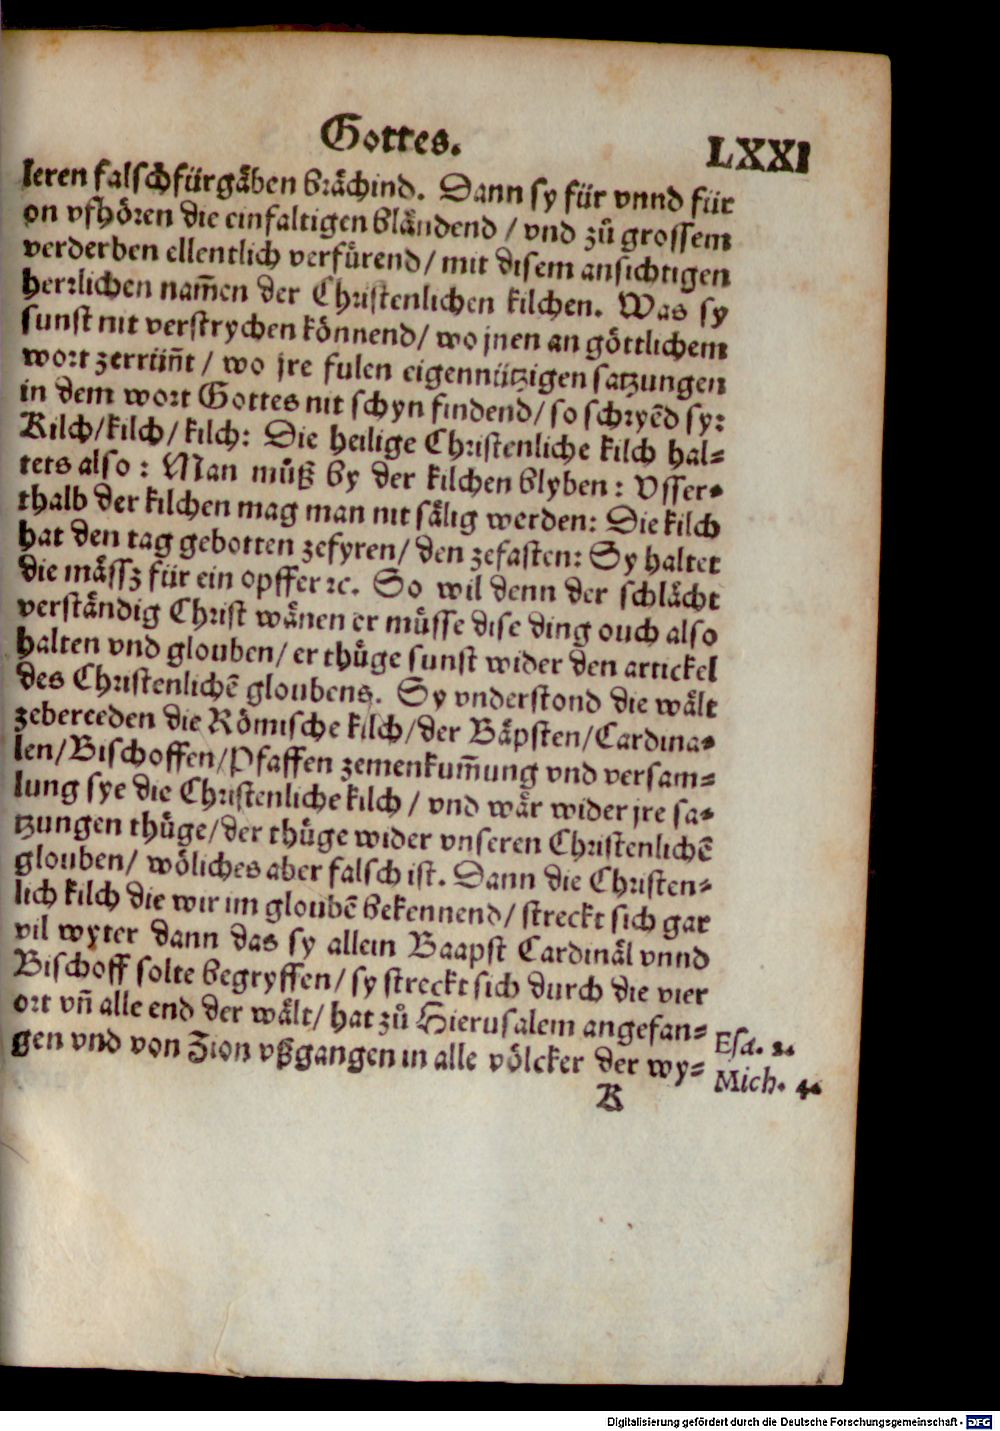 Gottes.
LXXI
leren falsch fürgäben brächind. Dann sy für vnnd für
on vfhören die einfaltigen bländend / vnd zů grossem
verderben ellentlich verfürend / mit disem ansichtigen
herrlichen nam̃en der Christenlichen kilchen. Was sy
sunst nit verstrychen könnend / wo jnen an göttlichem
wort zerrün̄t / wo jre fulen eigennützigen satzungen
in dem wort Gottes nit schyn findend / so schryēd sy:
Kilch / kilch / kilch: Die heilige Christenliche kilch hal⸗
tets also: Man můß by der kilchen blyben: Vsser⸗
thalb der kilchen mag man nit sälig werden: Die kilch
hat den tag gebotten zefyren / den zefasten: Sy haltet
die mäſſz für ein opffer ꝛc. So wil denn der schlächt
verständig Christ wänen er müsse dise ding ouch also
halten vnd glouben / er thüge sunst wider den artickel
des Christenlichē gloubens. Sy vnderstond die wält
zebereeden die Römische kilch / der Bäpsten / Cardina⸗
len / Bischoffen / Pfaffen zemenkum̃ung vnd versam⸗
lung sye die Christenliche kilch / vnd wär wider jre sa⸗
tzungen thüge / der thüge wider vnseren Christenlichē
glouben / wöliches aber falsch ist. Dann die Christen⸗
lich kilch die wir im gloubē bekennend / streckt sich gar
vil wyter dann das sy allein Baapst Cardinäl vnnd
Bischoff solte begryffen / sy streckt sich durch die vier
ort vn̄ alle end der wält / hat zů Hierusalem angefan⸗
gen vnd von Zion vßgangen in alle völcker der wy⸗
Esa. 2.
Mich. 4.
K
Digitalisierung gefördert durch die Deutsche Forschungsgemeinschaft - DFG